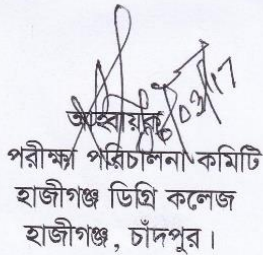 আহবায়ক
পরীক্ষা পরিচালনা কমিটি
হাজীগঞ্জ ডিগ্রি কলেজ
হাজীগঞ্জ, চাঁদপুর।